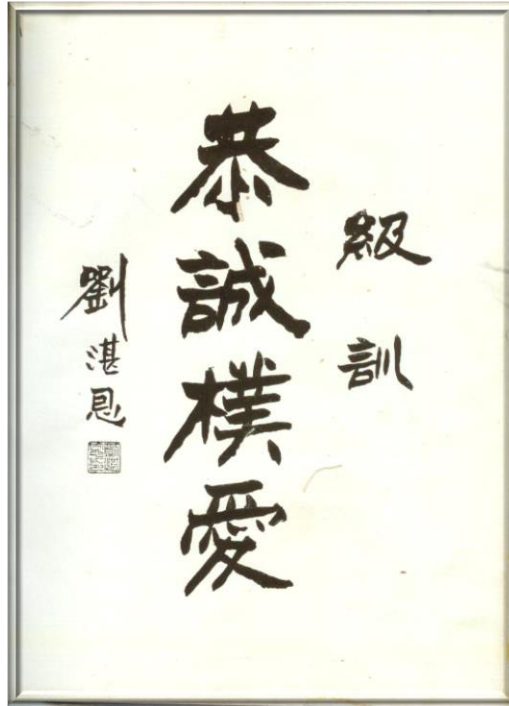 級訓
恭誠樸愛
劉湛恩